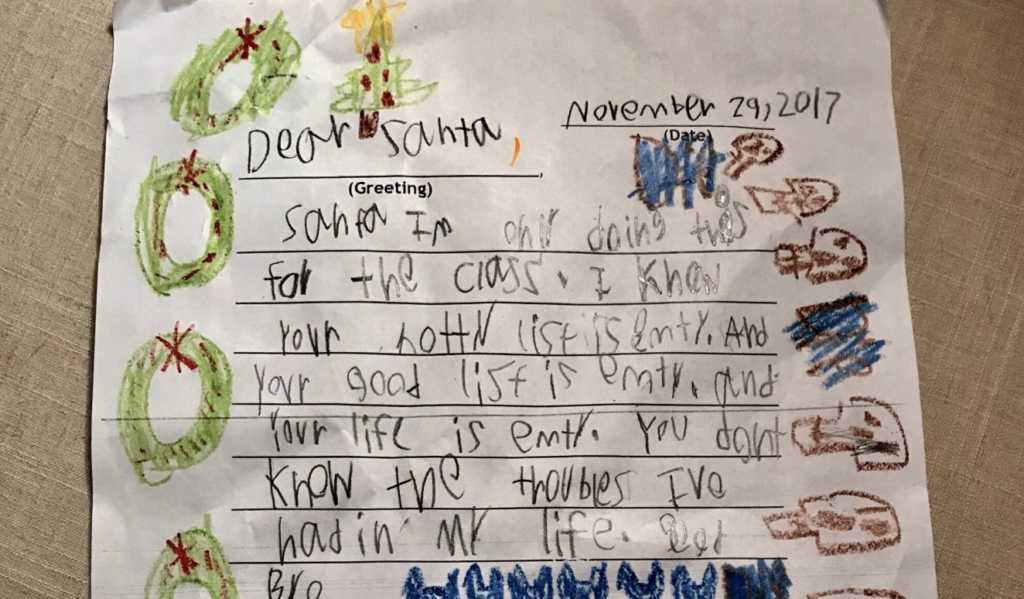 November 29, 2017
(Date)
Dear Santa,
(Greeting)
Santa Im only doing this
for the class. I Know
Your notty list is emty. And
Your good list is emty. and
Your life is emty. You dont
Know the troubles Ive
had in my life.